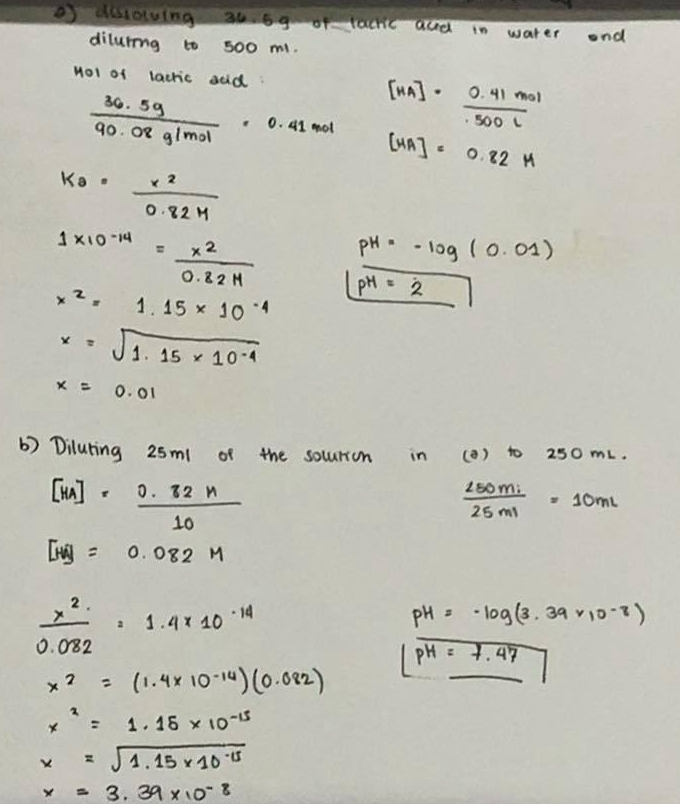 a) dissolving 36.5g of lactic acid in water and
diluting to 500 ml.
Mol of lactic acid :
36.5g
90.08 g/mol
= 0.41 mol
[HA] = 0.41 mol
.500 L
[HA] = 0.82 M
Ka = x²
0.82 M
1 x10⁻¹⁴ = x²
0.82 M
x² = 1.15 x 10⁻⁴
x = √1.15 x 10⁻⁴
x = 0.01
pH = -log (0.01)
pH = 2
b) Diluting 25ml of the solution in (a) to 250 mL.
[HA] = 0.82 M
10
[HA] = 0.082 M
250 ml
25 ml
= 10mL
x²
0.082
= 1.4 x 10⁻¹⁴
x² = (1.4x 10⁻¹⁴)(0.082)
x² = 1.15 x 10⁻¹⁵
x = √1.15 x 10⁻¹⁵
x = 3.39 x 10⁻⁸
pH = -log(3.39 x 10⁻⁸)
pH = 7.47